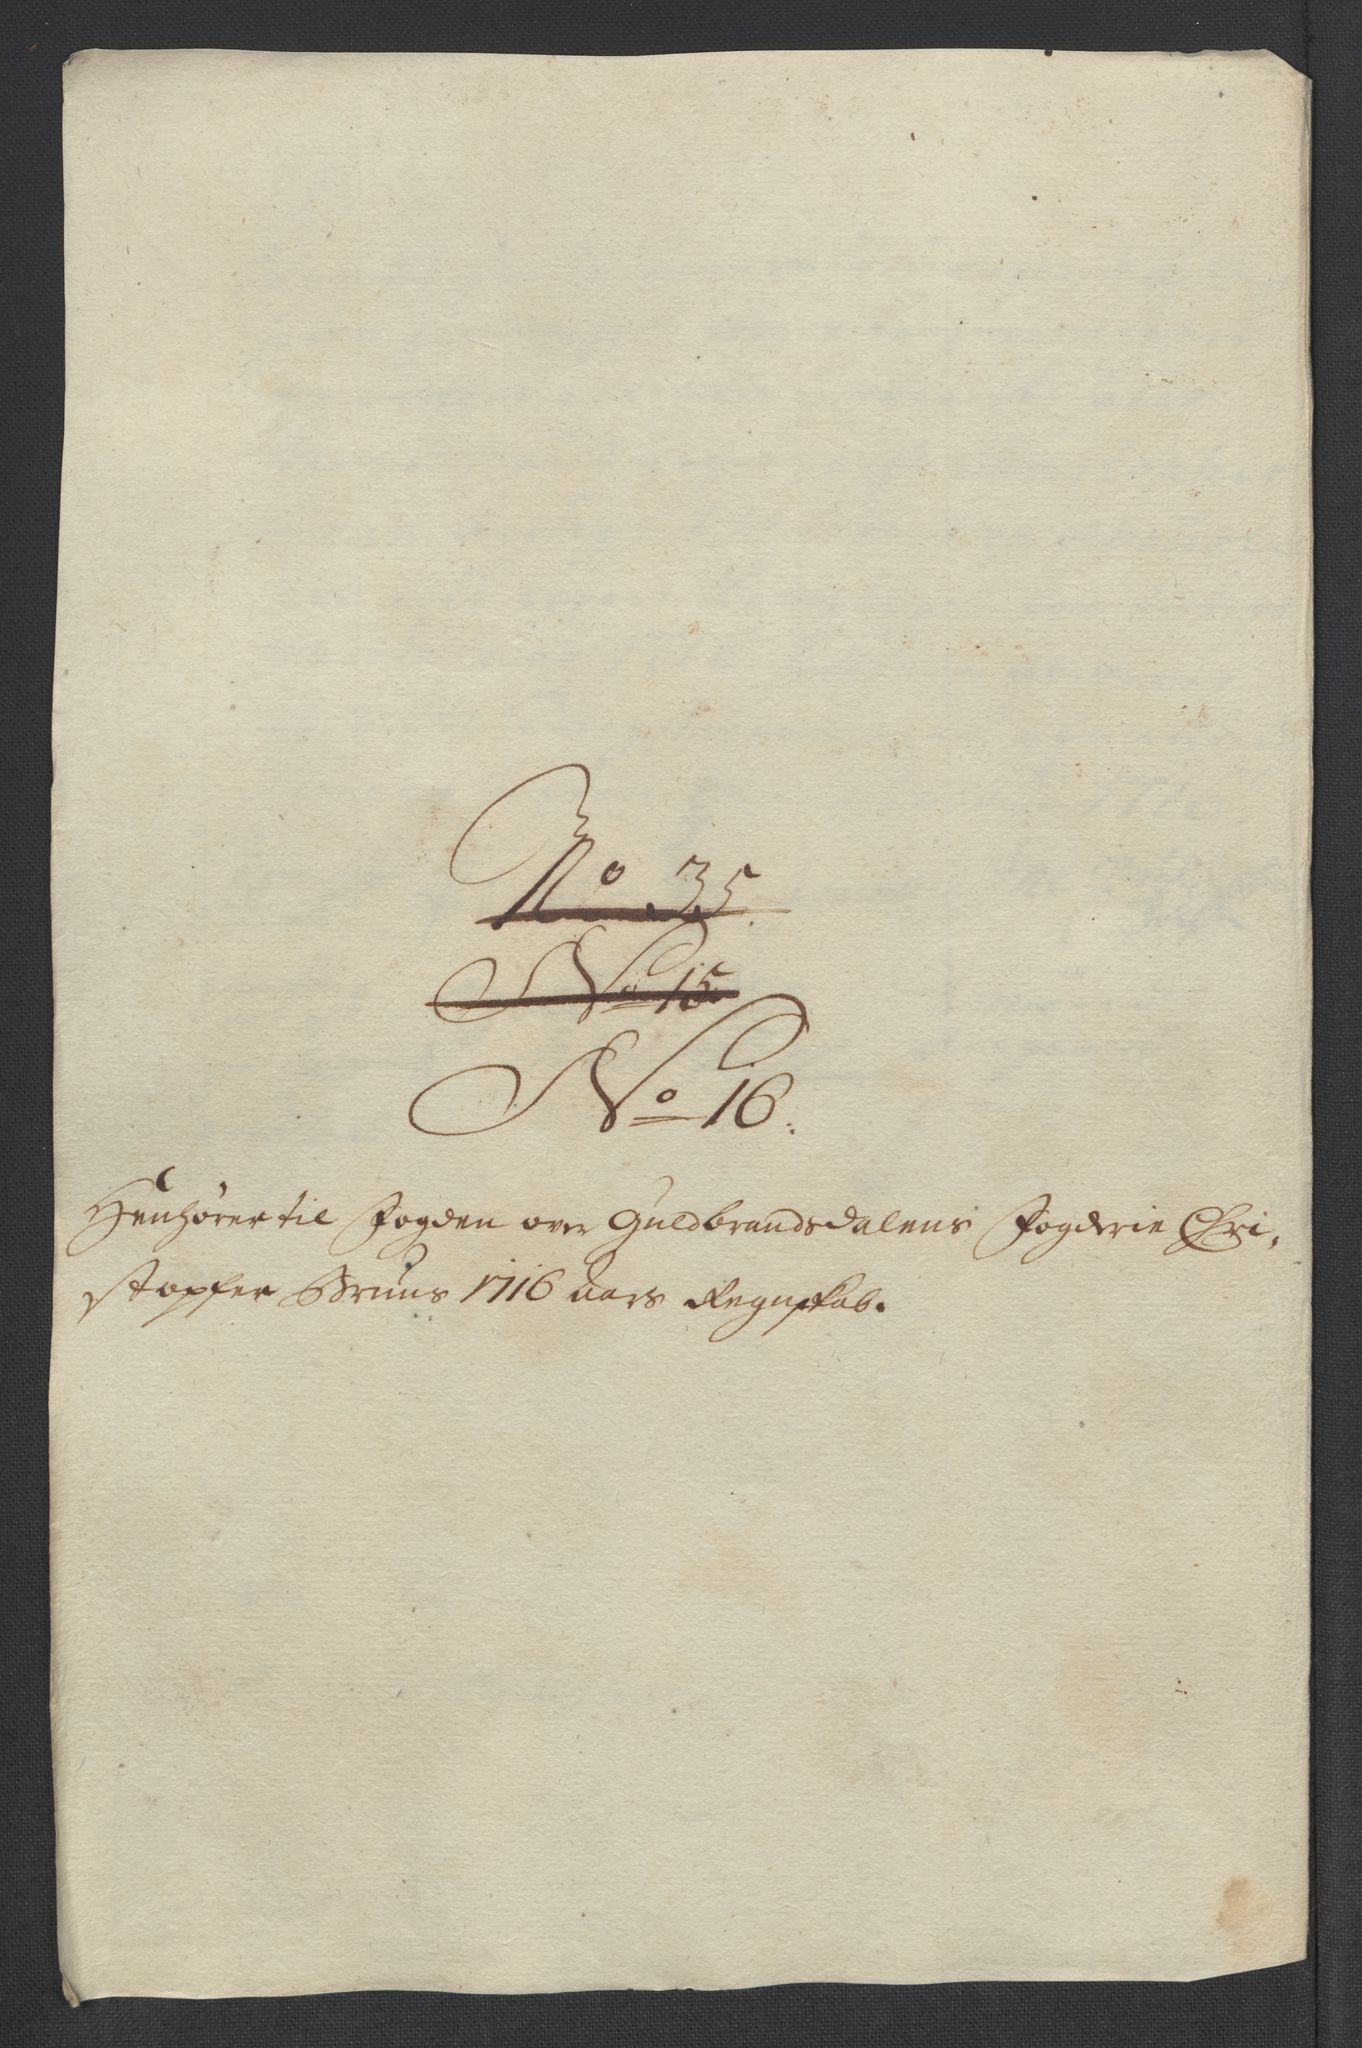 No. 35.
No 15
No 16.
Henhører til Fogden over Guldbrandsdalens Fogderie Chri,
stopher Bruns 1716 aars Regnskab.